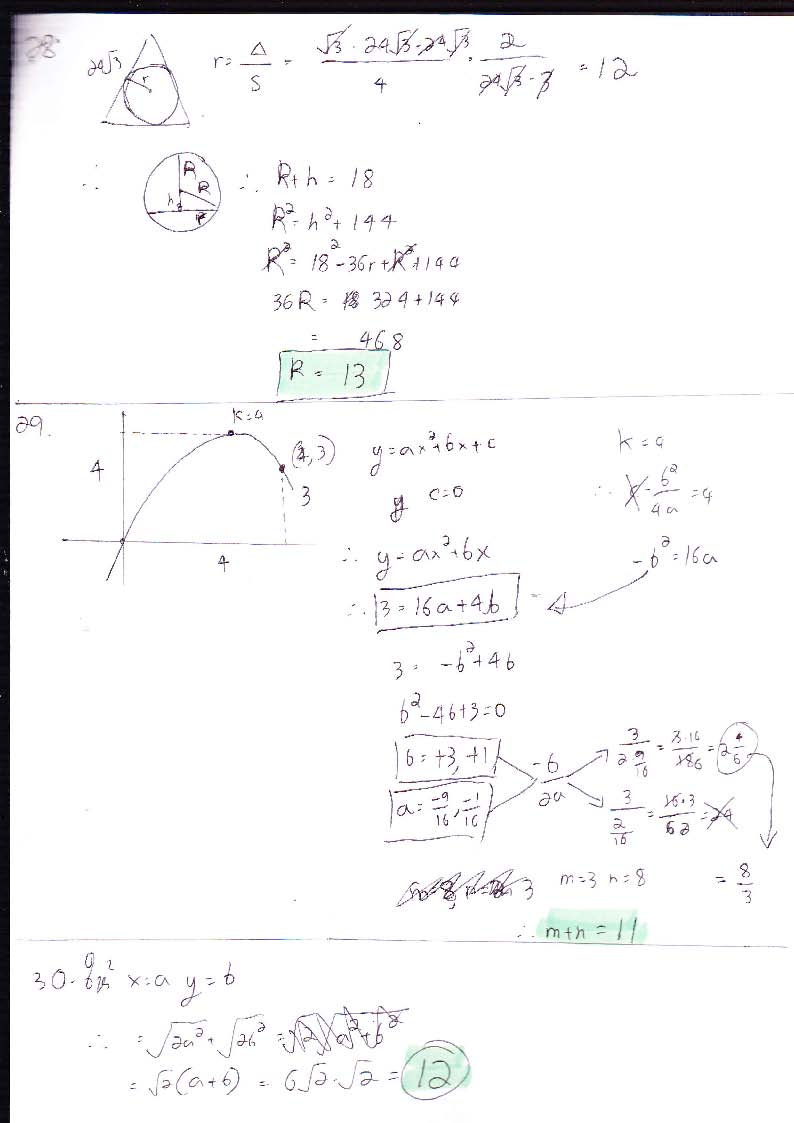 28
24√3 r r = Δ/S = (√3 · 24√3 · 24√3)/4 · 2/(24√3 · 3) = 12
∴ R R h r ∴ R + h = 18
R² = h² + 144
R² = 18² - 36r + R² + 144
36R = 324 + 144
= 468
R = 13
29.
k=4
4
(4,3)
3
4
y = ax² + bx + c
y c=0
∴ y = ax² + bx
∴ 3 = 16a + 4b
k = 4
∴ -b²/4a = 4
-b² = 16a
3 = -b² + 4b
b² - 4b + 3 = 0
b = +3, +1
a = -9/16, -1/16
-b/2a
3/(2 9/16) = 3·16/186 = 2 4/6
3/(2/16) = 16·3/2 = 24
= 8/3
m=3 n=8
∴ m+n = 11
30. x=a y=b
∴ = √2a² + √2b² = √2 √a²+b²
= √2(a+b) = 6√2·√2 = 12